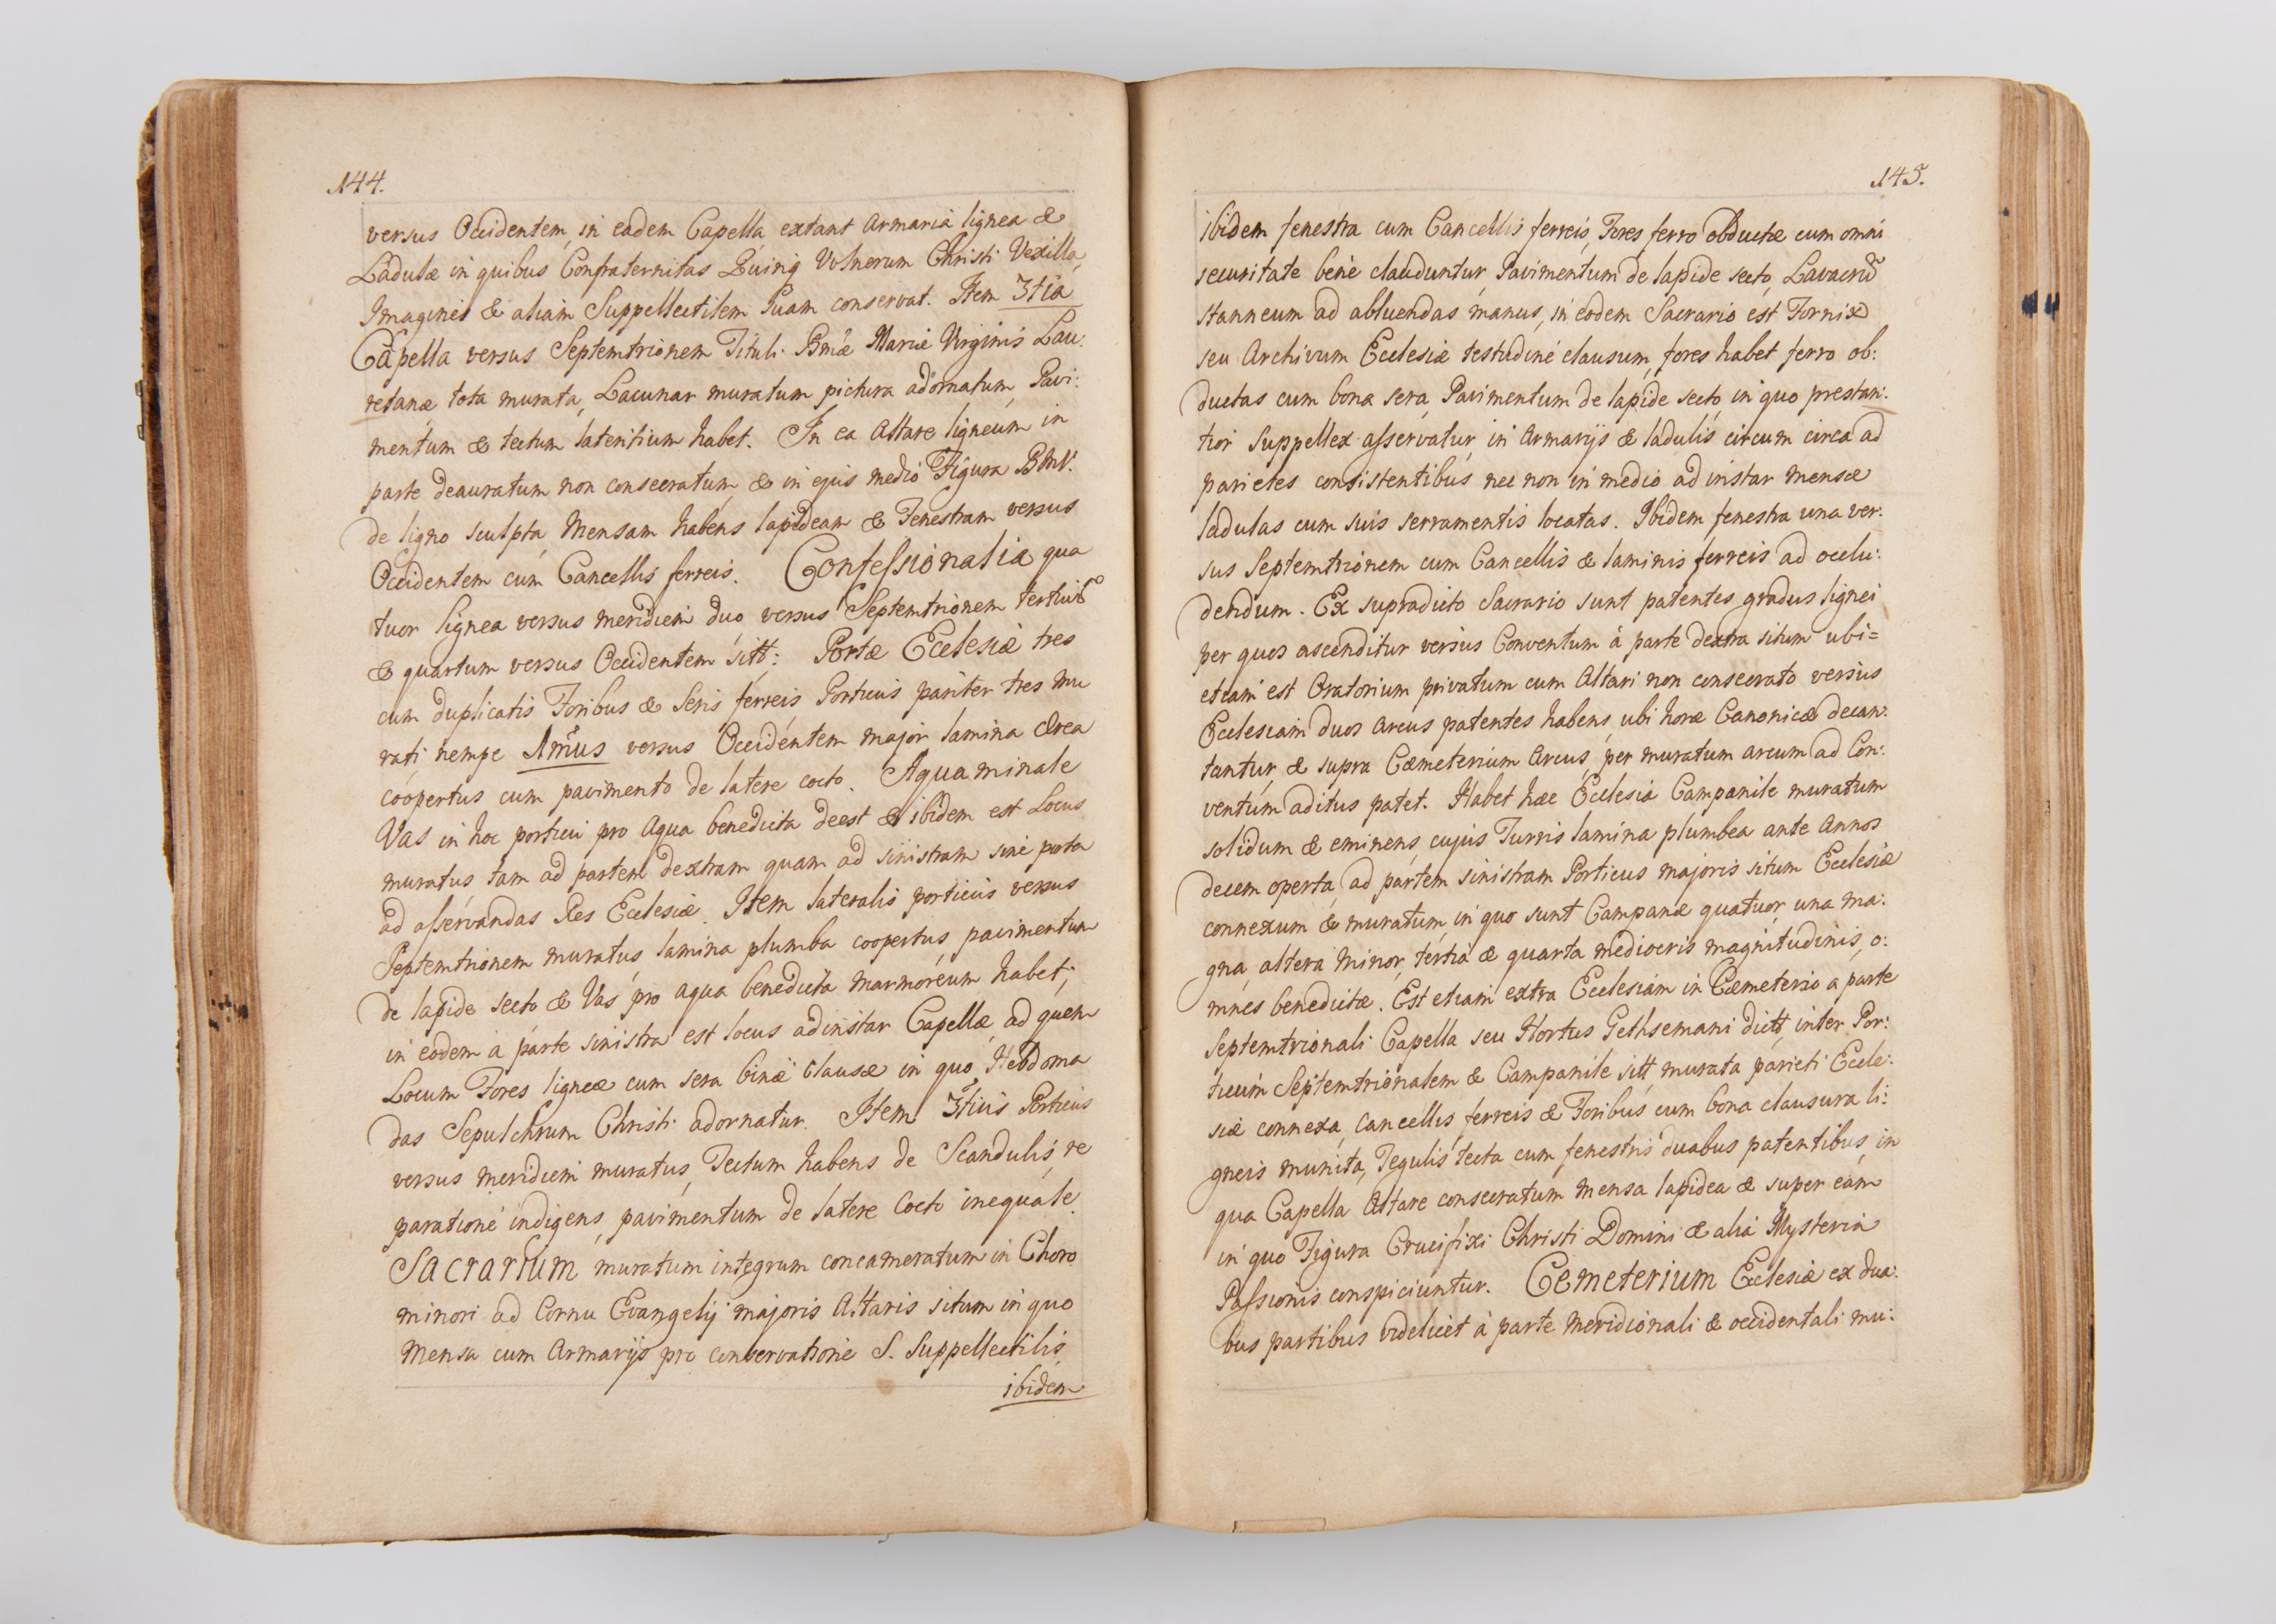 144.
versus Occidentem, in eadem Capella extant Armaria lignea &
Ladulæ in quibus Confraternitas Quinq Vulnerum Christi Vexilla,
Imagines & aliam Suppellectilem suam conservat. Item 3tia
Capella versus Septemtrionem Tituli Bmæ Mariæ Virginis Lau:
retanæ tota murata, Lacunar muratum pictura adornatum, Pavi:
mentum & tectum lateritium habet. In ea Altare ligneum in
parte deauratum non consecratum, & in ejus medio Figura BMV.
de ligno sculpta, Mensam habens lapideam & Fenestram versus
Occidentem cum Cancellis ferreis. Confessionalia qua
tuor lignea versus meridiem duo versus Septemtrionem tertium
& quartum versus Occidentem sitt: Portæ Ecclesiæ tres
cum duplicatis Foribus & Seris ferreis Porticus pariter tres mu
rati, nempe 1mus versus Occidentem major lamina ærea
coopertus cum pavimento de latere cocto. Aquaminale
Vas in hoc porticu pro Aqua benedicta deest & ibidem est Locus
muratus tam ad partem dextram quam ad sinistram sine porta
ad asservandas Res Ecclesiæ. Item lateralis porticus versus
Septemtrionem muratus, lamina plumba coopertus, pavimentum
de lapide secto & Vas pro aqua benedicta marmoreum habet;
in eodem à parte sinistra est locus adinstar Capellæ, ad quem
Locum Fores ligneæ cum sera binæ clausæ in quo, Hebdoma
das Sepulchrum Christi adornatur. Item 3tius Porticus
versus meridiem muratus, Tectum habens de Scandulis, re
paratione indigens, pavimentum de latere Cocto inequale.
Sacrarium muratum integrum concameratum in Choro
minori ad Cornu Evangelij majoris Altaris situm in quo
Mensa cum Armarijs pro conservatione S. Suppellectilis,
ibidem
145.
ibidem fenestra cum Cancellis ferreis, Fores ferro obductæ cum omni
securitate benè clauduntur, Pavimentum de lapide secto, Lavacrũ
stanneum ad abluendas manus, in eodem Sacrario est Fornix
seu Archivum Ecclesiæ testudine clausum, fores habet ferro ob:
ductas cum bona sera, Pavimentum de lapide secto, in quo prestan:
tior Suppellex asservatur, in Armarijs & ladulis circum circa ad
parietes consistentibus nec non in medio ad instar mensæ
ladulas cum suis serramentis locatas. Ibidem fenestra una ver:
sus Septemtrionem cum Cancellis & laminis ferreis ad occlu:
dendum. Ex supradicto Sacrario sunt patentes gradus lignei
per quos ascenditur versus Conventum à parte dextra situm ubi=
etiam est Oratorium privatum cum Altari non consecrato versus
Ecclesiam duos Arcus patentes habens, ubi horæ Canonicæ decan:
tantur, & supra Cæmeterium Arcus, per muratum arcum ad Con:
ventum aditus patet. Habet hæc Ecclesia Campanile muratum
solidum & eminens, cujus Turris lamina plumbea ante Annos
decem operta, ad partem sinistram Porticus majoris situm Ecclesiæ
connexum & muratum, in quo sunt Campanæ quatuor, una ma:
gna, altera minor, tertia & quarta mediocris magnitudinis, o:
mnes benedictæ. Est etiam extra Ecclesiam in Cæmeterio a parte
Septemtrionali Capella seu Hortus Gethsemani dictt, inter Por:
ticum Septemtrionalem & Campanile sitt, murata parieti Eccle:
siæ connexa, Cancellis ferreis & Foribus cum bona clausura li:
gneis munita, Tegulis tecta cum fenestris duabus patentibus, in
qua Capella Altare consecratum mensa lapidea & super eam
in quo Figura Crucifixi Christi Domini & alia Mysteria
Passionis conspiciuntur. Cemeterium Ecclesiæ ex dua:
bus partibus videlicet à parte meridionali & occidentali mu: